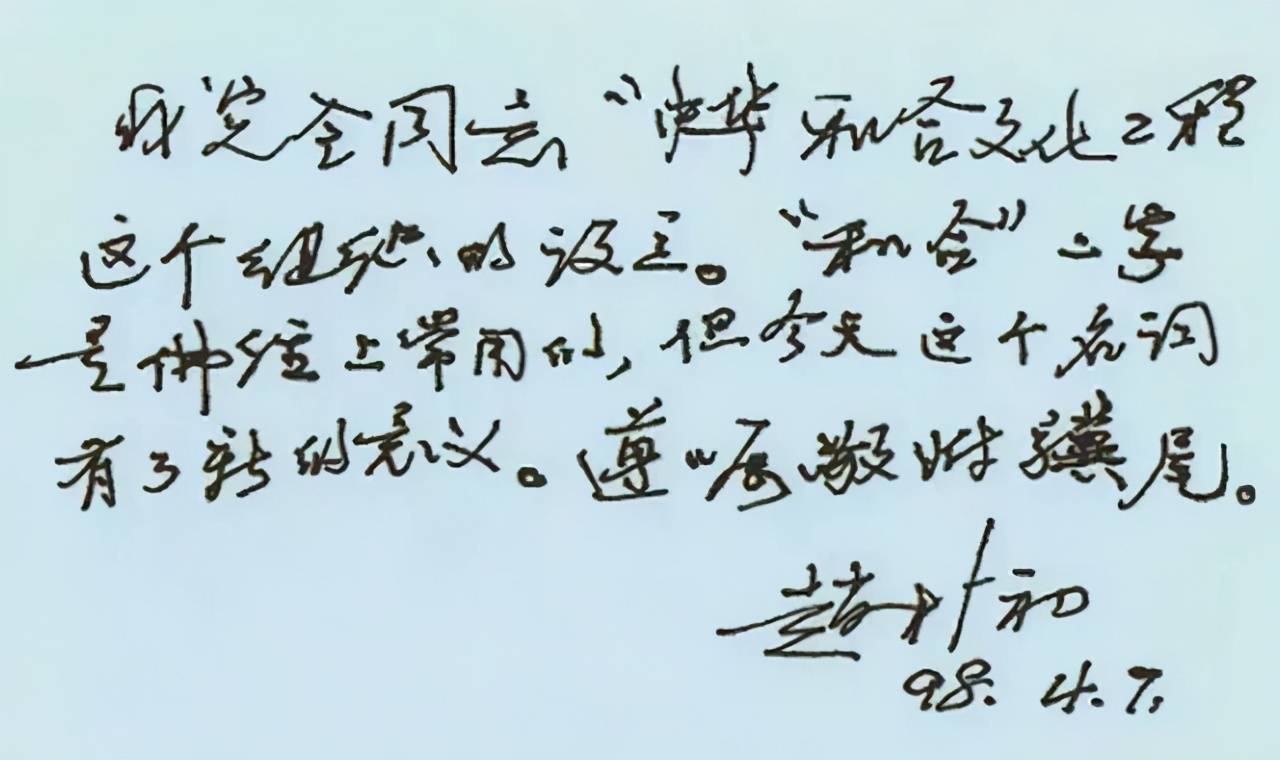 我完全同意“中华和合文化工程
这个组织的设立。“和合”二字
是佛经上常用的，但今天这个名词
有了新的意义。遵嘱敬附骥尾。
趙朴初
98.4.7.